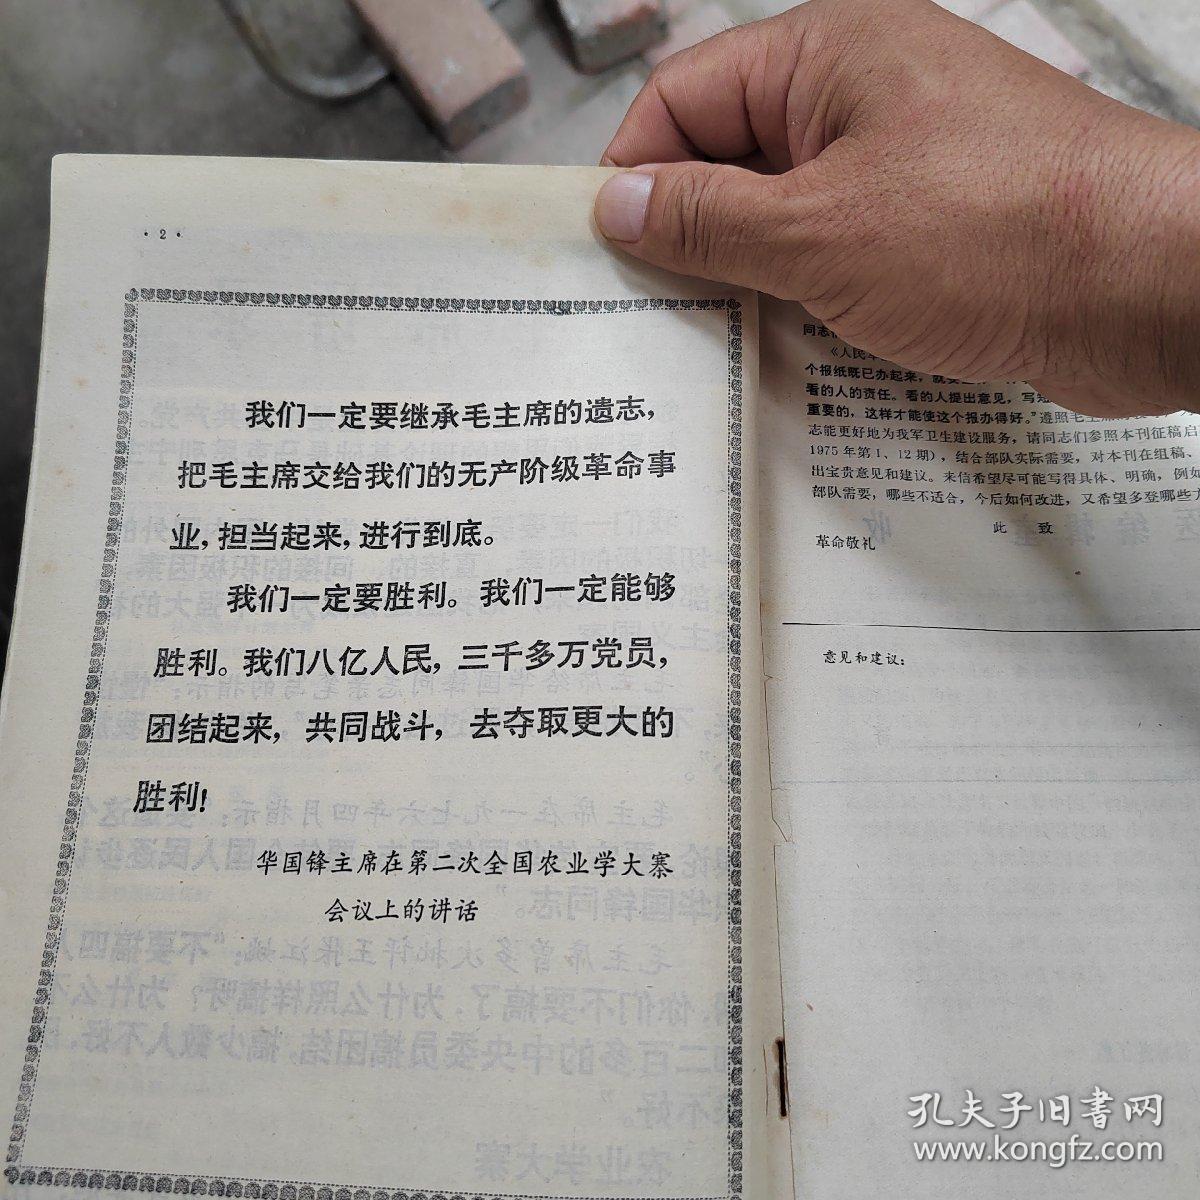 · 2 ·
我们一定要继承毛主席的遗志，
把毛主席交给我们的无产阶级革命事
业，担当起来，进行到底。
我们一定要胜利。我们一定能够
胜利。我们八亿人民，三千多万党员，
团结起来，共同战斗，去夺取更大的
胜利！
华国锋主席在第二次全国农业学大寨
会议上的讲话
同志
《人民军
个报纸既已办起来，就要
看的人的责任。看的人提出意见，写短
重要的，这样才能使这个报办得好。”遵照毛主席
志能更好地为我军卫生建设服务，请同志们参照本刊征稿启
1975年第1、12期），结合部队实际需要，对本刊在组稿、
出宝贵意见和建议。来信希望尽可能写得具体、明确，例如
部队需要，哪些不适合，今后如何改进，又希望多登哪些
此 致
革命敬礼
意见和建议：
孔夫子旧书网
www.kongfz.com